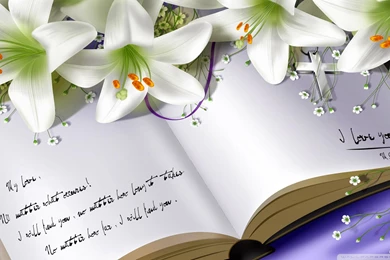 My love.
No matter what occures!
I will find you. no matter how long it takes
No matter how far. I will find you.
I love you